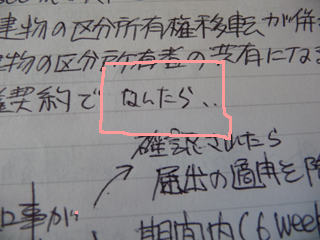 建物の区分所有権移転が併
建物の区分所有者の共有にな
契約で なんたら、、
確認されたら
届出の適用を
事が
期間内(6 week